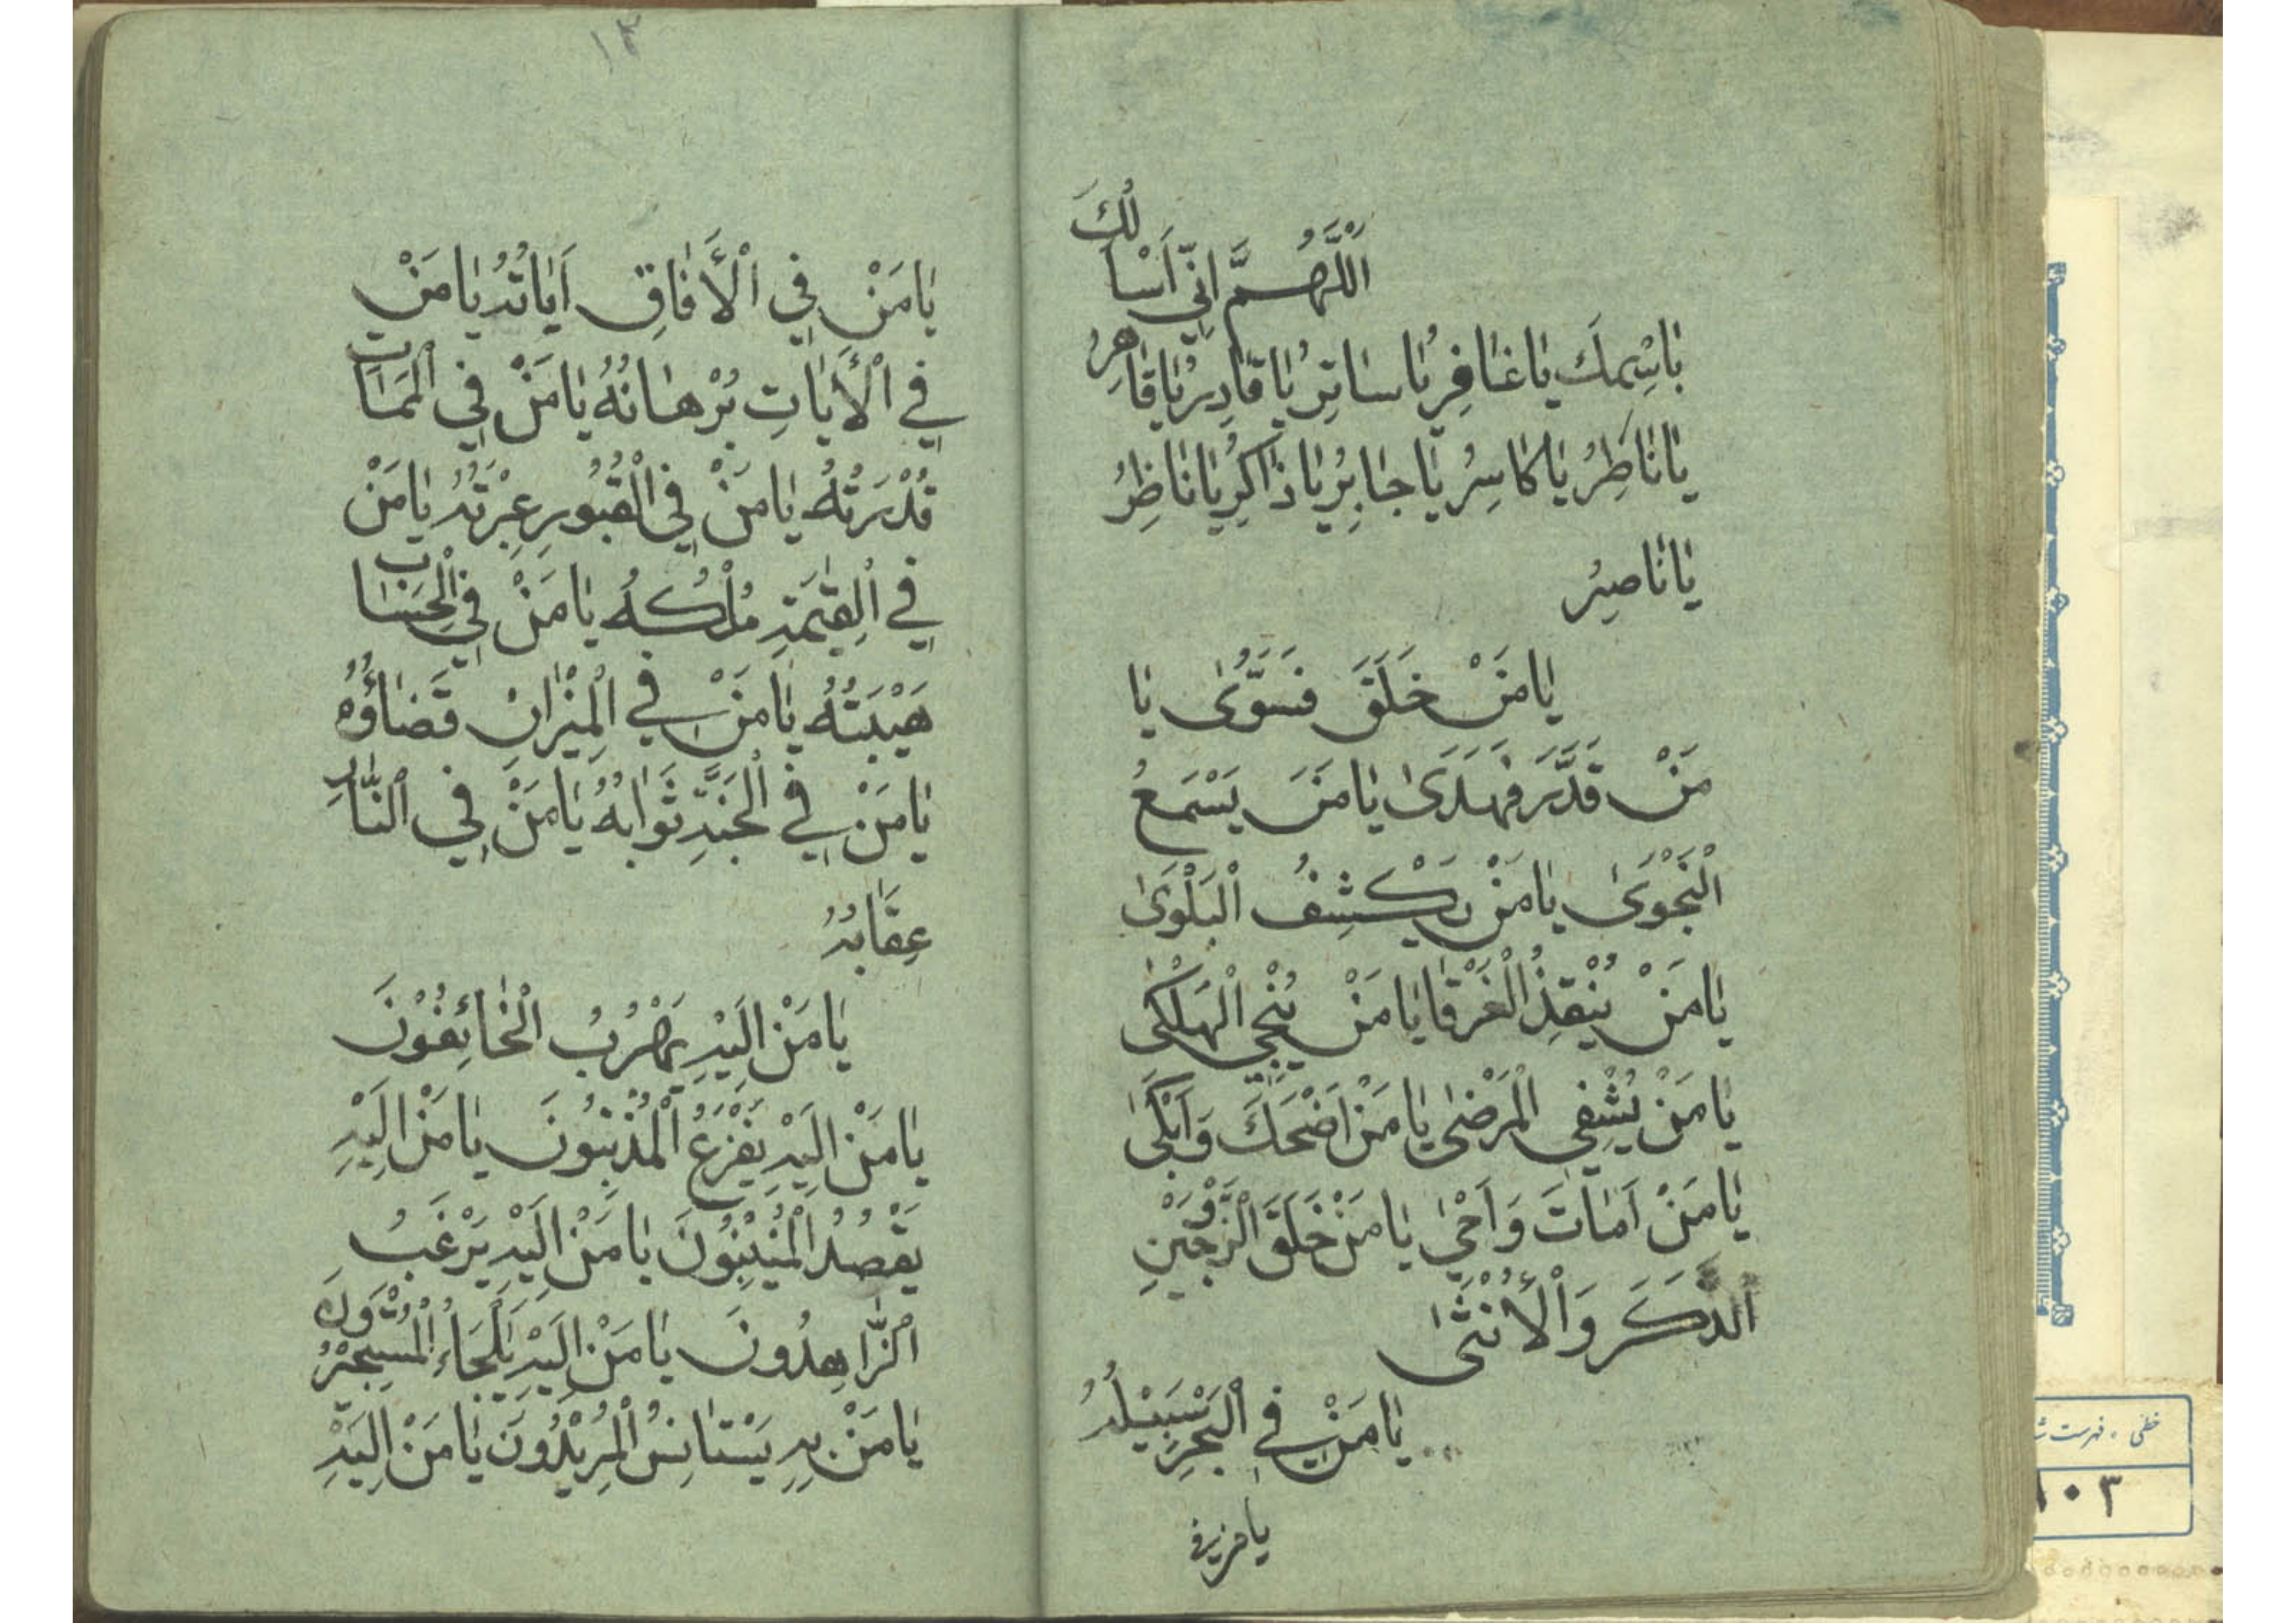 اَللّٰهُمَّ اِنّي اَسْأَلُكَ
بِاسْمِكَ يٰا غٰافِرُ يٰا سٰاتِرُ يٰا قٰادِرُ يٰا قٰاهِرُ
يٰا فٰاطِرُ يٰا كٰاسِرُ يٰا جٰابِرُ يٰا ذٰاكِرُ يٰا نٰاظِرُ
يٰا نٰاصِرُ
يٰا مَنْ خَلَقَ فَسَوّٰى يٰا
مَنْ قَدَّرَ فَهَدَىٰ يٰا مَنَ يَسْمَعُ
الْنَجْوَىٰ يٰا مَنْ يَكْشِفُ الْبَلْوَىٰ
يٰا مَنْ يُنْقِذُ الْغَرْقٰا يٰا مَنْ يُنْجِي الْهَلْكىٰ
يٰا مَنْ يُشْفِي الْمَرْضىٰ يٰا مَنْ اَضْحَكَ وَاَبْكىٰ
يٰا مَنْ اَمٰاتَ وَاَحْيٰ يٰا مَنْ خَلَقَ الْزَّوْجَيْنِ
الذَّكَرَ وَالْأُنْثىٰ
يٰا مَنْ فِي الْبَحْرِ سَبيْلُهُ
يا من في
١٣
يٰا مَنْ فِي الْأَفٰاقِ اَيٰاتُهُ يٰا مَنْ
فِي الْأَيٰاتِ بُرْهٰانُهُ يٰا مَنْ فِي الْمَمٰاتِ
قُدْرَتُهُ يٰا مَنْ فِي الْقُبُورِ عِبْرَتُهُ يٰا مَنْ
فِي الْقِيٰمَةِ مُلْكُهُ يٰا مَنْ فِي الْحِسٰابِ
هَيْبَتُهُ يٰا مَنْ فِي الْمِيْزٰانِ قَضٰاؤُهُ
يٰا مَنْ فِي الْجَنَّةِ ثَوٰابُهُ يٰا مَنْ فِي الْنّٰارِ
عِقٰابُهُ
يٰا مَنْ اِلَيْهِ يَهْرُبُ الْخٰائِفُوْنَ
يٰا مَنْ اِلَيْهِ يَفْزَعُ الْمُذْنِبُونَ يٰا مَنْ اِلَيْهِ
يَقْصُدُ الْمُنيْبُونَ يٰا مَنْ اِلَيْهِ يَرْغَبُ
الْزّٰاهِدُونَ يٰا مَنْ اِلَيْهِ يَلْجَاءُ
يٰا مَنْ بِهِ يَسْتٰانِسُ الْمُريْدُونَ يٰا مَنْ اِلَيْهِ
خطی ، فهرست
١٠٣